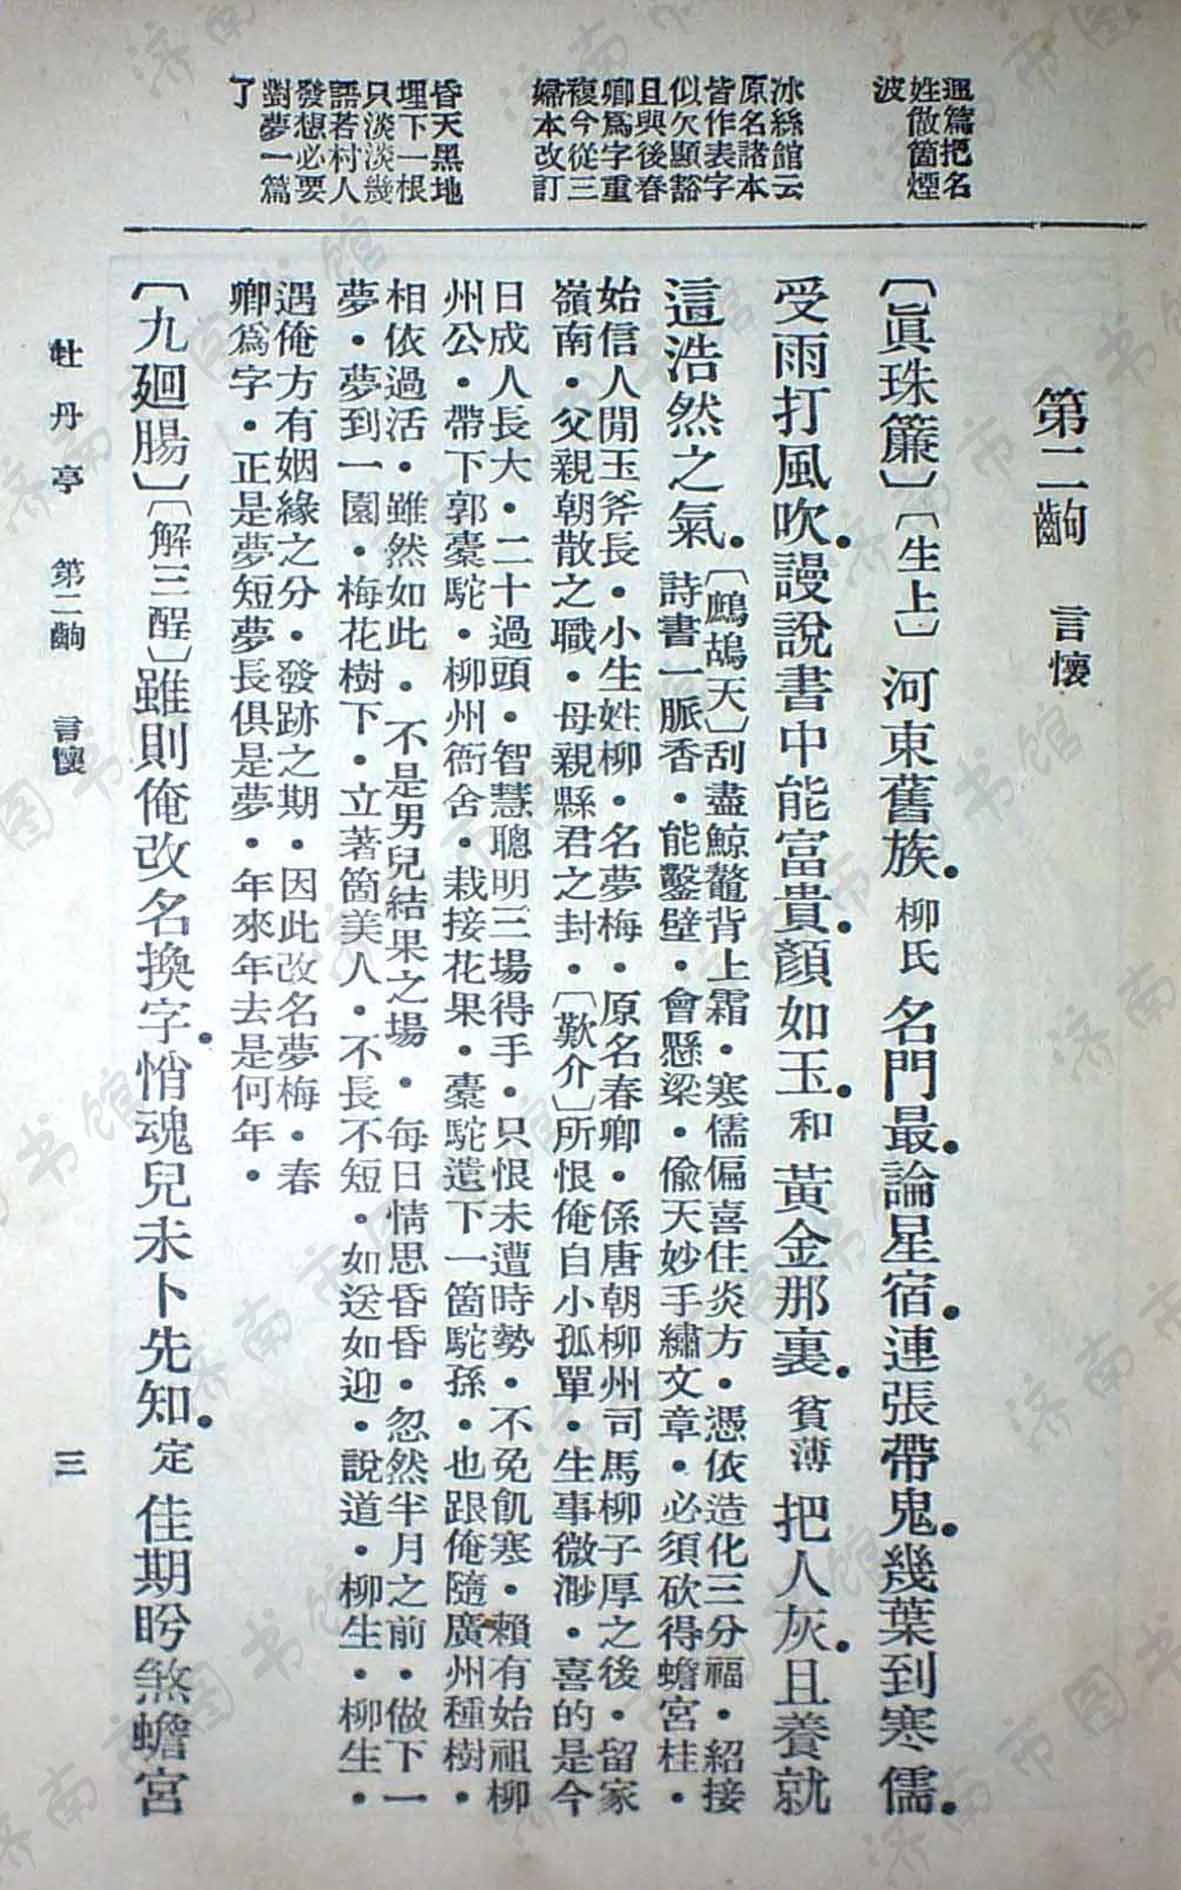 通篇把名
姓做箇煙
波
冰絲館云
原名諸本
皆作表字
似欠顯豁
且與後春
卿爲字重
複今從三
婦本改訂
昏天黑地
埋下一根
只淡淡幾
語若村人
發想必要
對夢一篇
了
第二齣 言懷
〔眞珠簾〕〔生上〕河東舊族•柳氏名門最•論星宿•連張帶鬼•幾葉到寒儒•
受雨打風吹•謾說書中能富貴•顏如玉•和黃金那裏•貧薄把人灰•且養就
這浩然之氣•〔鷓鴣天〕刮盡鯨鼇背上霜•寒儒偏喜住炎方•憑依造化三分福•紹接
詩書一脈香•能鑿壁•會懸梁•偷天妙手繡文章•必須砍得蟾宮桂•
始信人閒玉斧長•小生姓柳•名夢梅•原名春卿•係唐朝柳州司馬柳子厚之後•留家
嶺南•父親朝散之職•母親縣君之封•〔歎介〕所恨俺自小孤單•生事微渺•喜的是今
日成人長大•二十過頭•智慧聰明•三場得手•只恨未遭時勢•不免飢寒•賴有始祖柳
州公•帶下郭橐駝•柳州衙舍•栽接花果•橐駝遺下一箇駝孫•也跟俺隨廣州種樹•
相依過活•雖然如此•不是男兒結果之場•每日情思昏昏•忽然半月之前•做下一
夢•夢到一園•梅花樹下•立著箇美人•不長不短•如送如迎•說道•柳生•柳生•
遇俺方有姻緣之分•發跡之期•因此改名夢梅•春
卿爲字•正是夢短夢長俱是夢•年來年去是何年•
〔九廻腸〕〔解三酲〕雖則俺改名換字•悄魂兒未卜先知•定佳期盻煞蟾宮
牡丹亭 第二齣 言懷 三
济南市图书馆